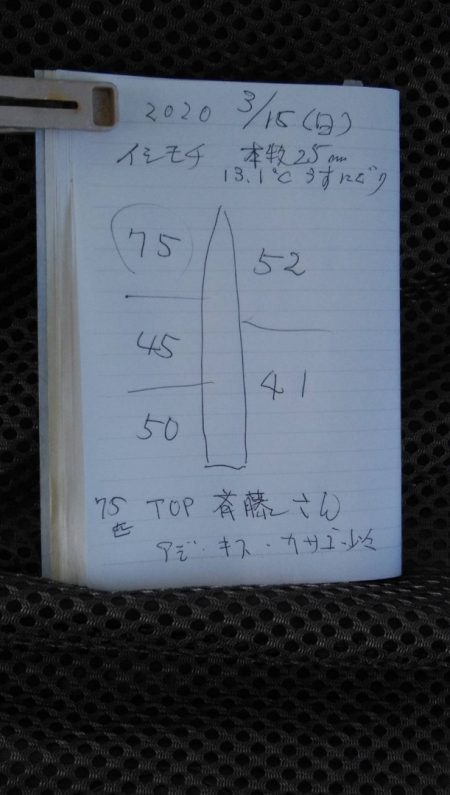 2020 3/15(日)
イシモチ 本牧25mm
13.1℃ うすにごり
75
52
45
41
50
75匹 TOP 斉藤さん
アジ・キス・カサゴ少々